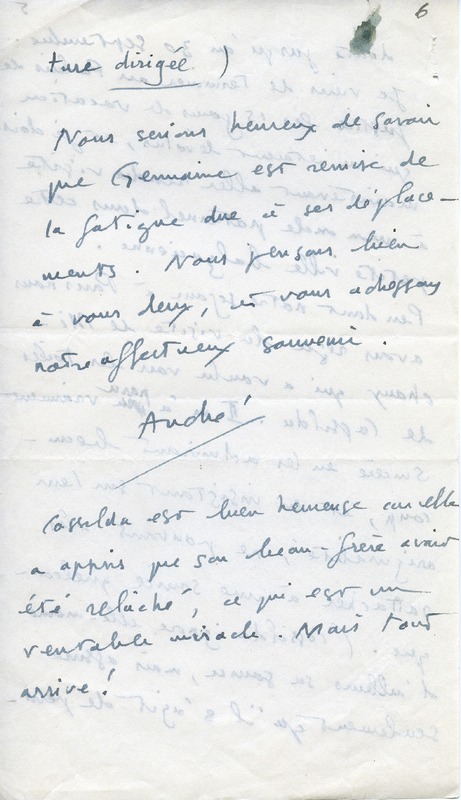 6
ture dirigée )
Nous serions heureux de savoir
que Germaine est remise de
la fatigue due à ses déplace-
ments. Nous pensons bien
à vous deux, et vous adressons
notre affectueux souvenir.
André
Cassilda est bien heureuse car elle
a appris que son beau-frère avait
été relâché, ce qui est un
veritable miracle. Mais tout
arrive!